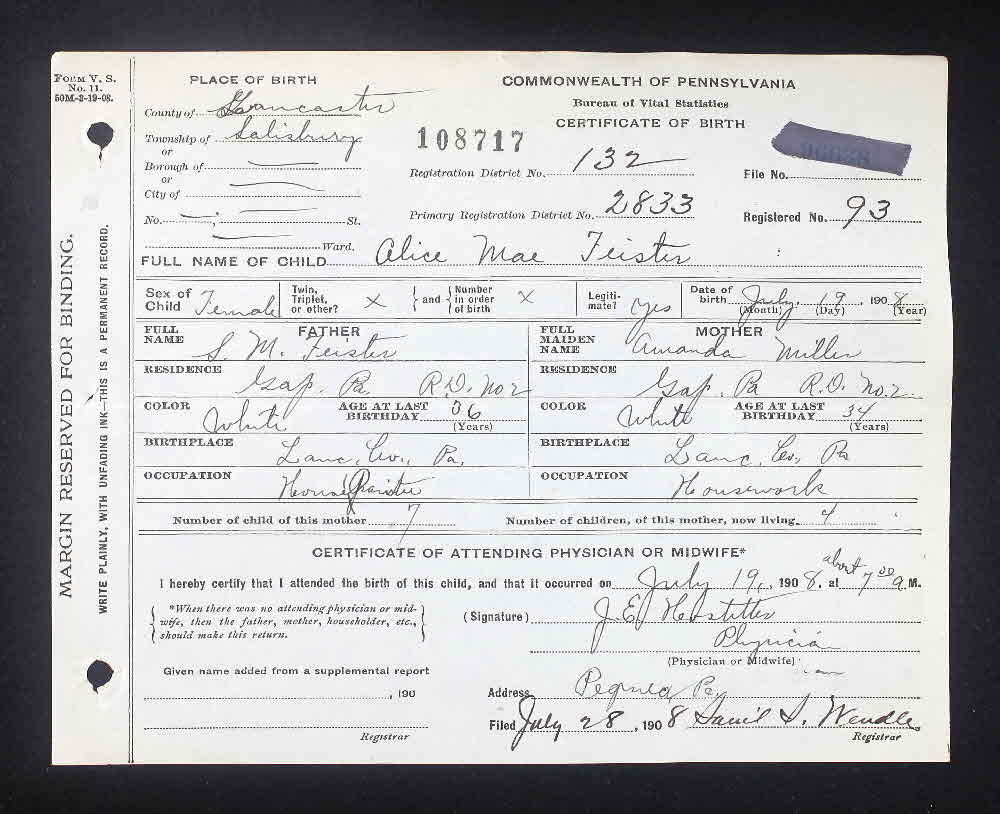 FORM V. S.
No. 11.
50M-3-19-08.
MARGIN RESERVED FOR BINDING.
WRITE PLAINLY, WITH UNFADING INK—THIS IS A PERMANENT RECORD.
PLACE OF BIRTH
County of Lancaster
Township of Salisbury
or
Borough of
or
City of
No. ; St.
Ward.
COMMONWEALTH OF PENNSYLVANIA
Bureau of Vital Statistics
CERTIFICATE OF BIRTH
108717
Registration District No. 132
File No.
Primary Registration District No. 2833
Registered No. 93
FULL NAME OF CHILD Alice Mae Feister
Sex of Child Female Twin, Triplet, or other? X and Number in order of birth X Legiti- mate? Yes Date of birth July 19, 1908
(Month) (Day) (Year)
FATHER
FULL NAME S. M. Feister
RESIDENCE Gap. Pa. R.D. No 2
COLOR White AGE AT LAST BIRTHDAY 36 (Years)
BIRTHPLACE Lanc. Co., Pa.
OCCUPATION House Painter
MOTHER
FULL MAIDEN NAME Amanda Miller
RESIDENCE Gap. Pa R.D. No. 2
COLOR White AGE AT LAST BIRTHDAY 34 (Years)
BIRTHPLACE Lanc. Co., Pa
OCCUPATION Housework
Number of child of this mother 7 Number of children, of this mother, now living 4
CERTIFICATE OF ATTENDING PHYSICIAN OR MIDWIFE*
I hereby certify that I attended the birth of this child, and that it occurred on July 19, 1908. at about 7 00 a M.
*When there was no attending physician or mid-
wife, then the father, mother, householder, etc.,
should make this return.
(Signature) J. E. Hostetter
Physician
(Physician or Midwife)
Given name added from a supplemental report
, 190
Registrar
Address Pequea, Pa
Filed July 28, 1908 S. Wendle
Registrar